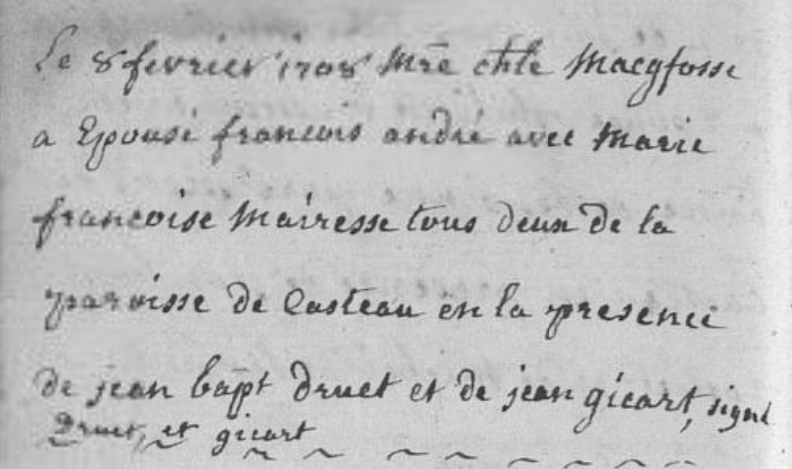 Le 8 fevrier 1708 Mre chle Macqfosse
a Epousé francois andré avec Marie
francoise Mairesse tous deux de la
paroisse de Casteau en la presence
de jean bapt druet et de jean gicart, signé
Druet, et gicart